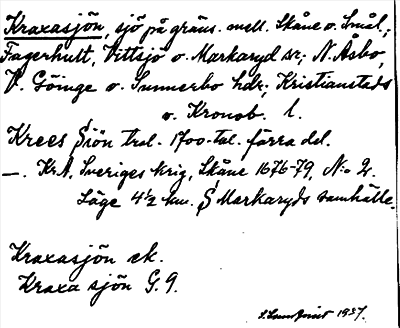 Kraxasjön, sjö på gräns. mell. Skåne o. Smål.;
Fagerhult, Vittsjö o. Markaryd sr; N. Åsbo,
V. Göinge o. Sunnerbo hdr; Kristianstads
o. Kronob. l.
Krees Siön trol. 1700-tal. förra del.
—. Kr. A. Sveriges krig, Skåne 1676-79, N:o 2.
Läge 4½ km. S Markaryds samhälle.
Kraxasjön ek.
Kraxa sjön G. 9.
1937.